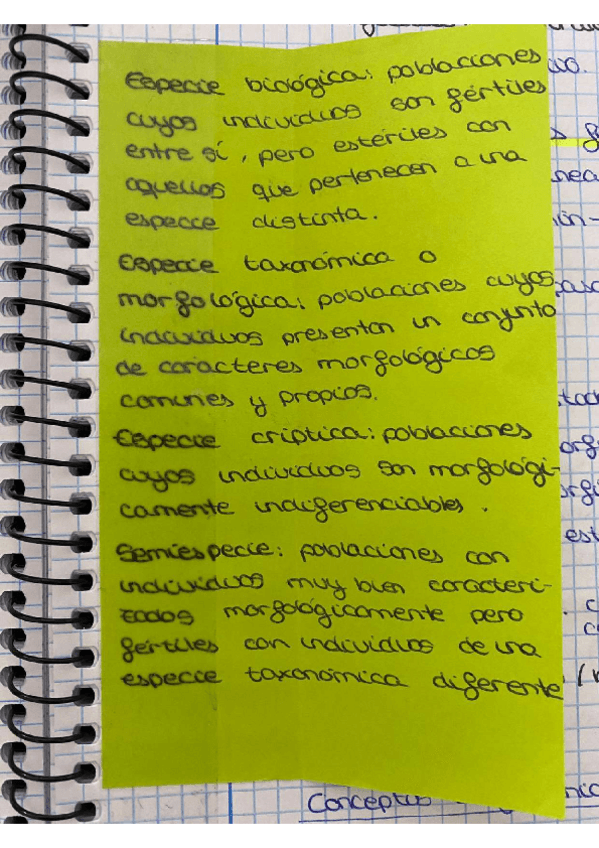 Especie biológica: poblaciones
cuyos individuos son fértiles
entre sí, pero estériles con
aquellos que pertenecen a una
especie distinta.
Especie taxonómica o
morfológica: poblaciones cuyos
individuos presentan un conjunto
de caracteres morfológicos
comunes y propios.
Especie críptica: poblaciones
cuyos individuos son morfológi-
camente indiferenciables.
Semiespecie: poblaciones con
individuos muy bien caracteri-
zados morfológicamente pero
fértiles con individuos de una
especie taxonómica diferente